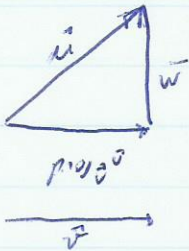 u⃗
w⃗
proj v⃗ u⃗
v⃗